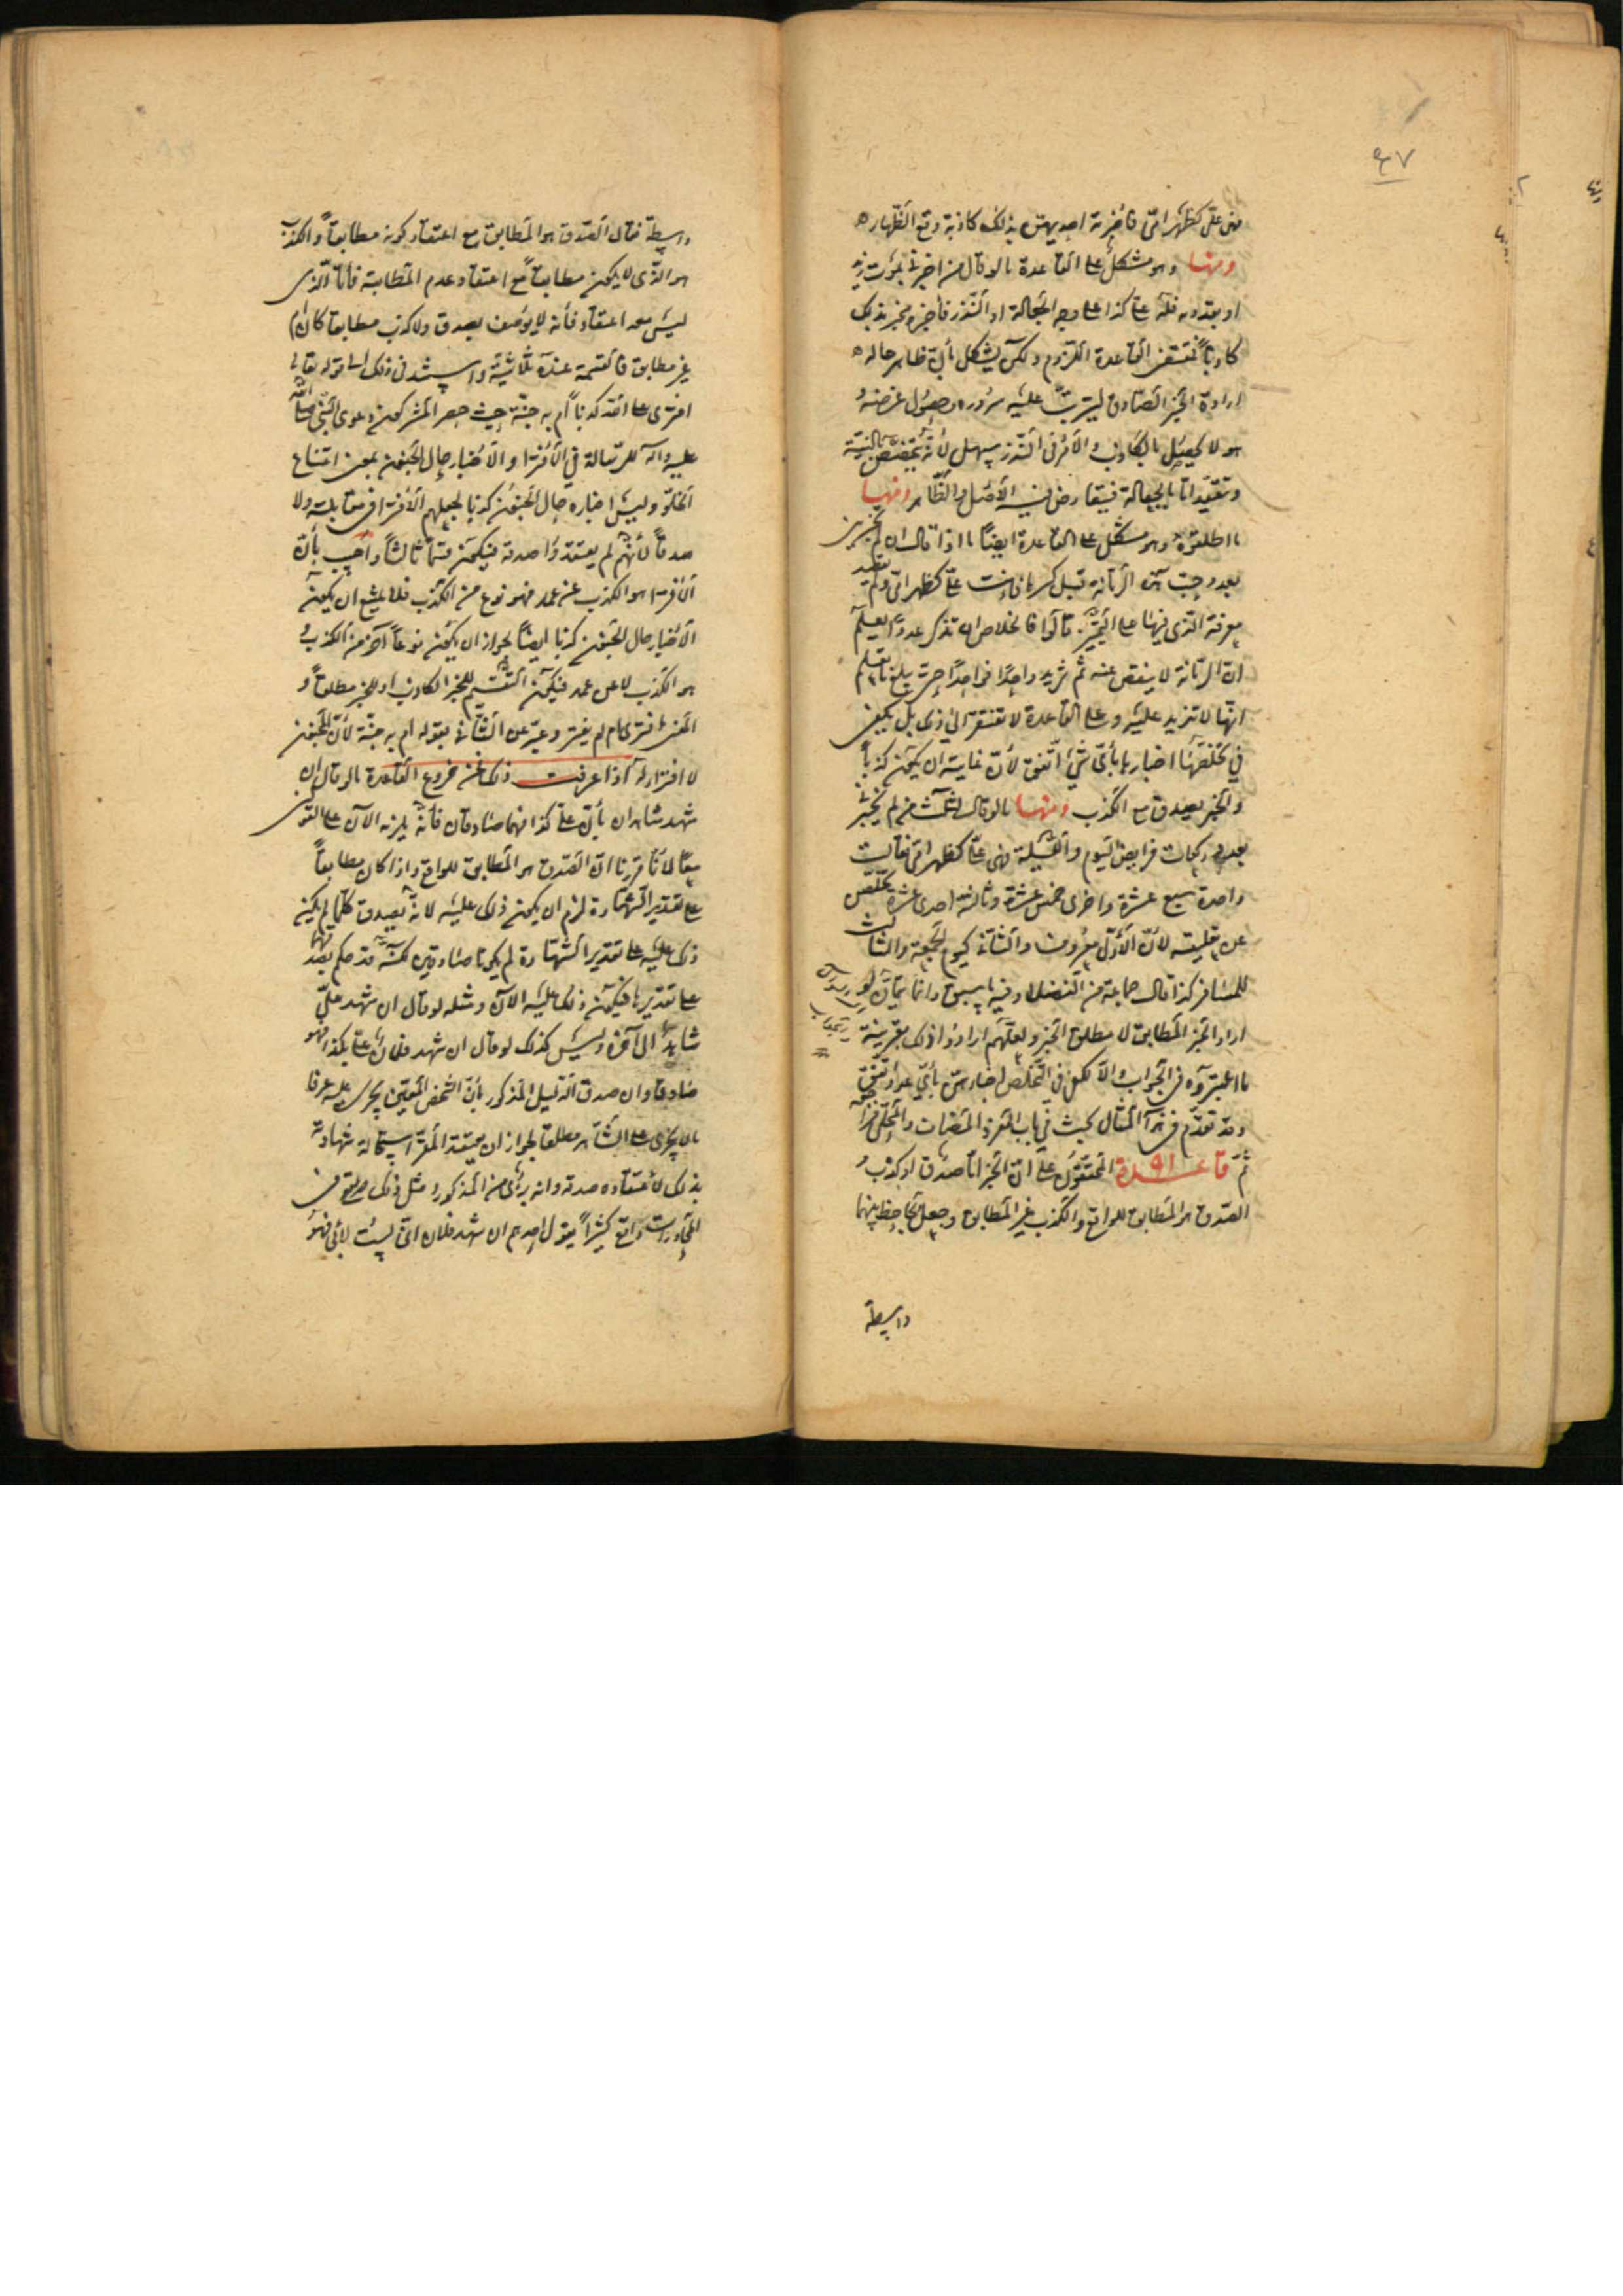 ٩٧
فهى علىّ كظهر امّى فأخبرته احديهنّ بذلك كاذبة وقع الظهار
ومنها وهو مشكل على القاعدة ما لو قال من اخبرنى بموت زيد
او بقدومه فله علىّ كذا على وجه الجعالة او النّذر فأخبره مخبر بذلك
كاذباً فمقتضى القاعدة اللّزوم ولكن يشكل بأنّ ظاهر حاله
ارادة الخبر الصّادق ليترتّب عليه سروره وحصول غرضه و
هو لا يحصل بالكاذب والأمر فى النّذر سهل لأنّه يتخصّص بالنيّة
وتقييدها بالجعالة فيتعارض فيه الأصل والظّاهر ومنها
ما اطلقوه وهو مشكل على القاعدة ايضاً ما اذا قال ان لم تخبرينى
بعدد حبّ هذه الرمّانة قبل كسرها فأنت علىّ كظهر امّى ولم يقصد
معرفة الّذى فيها على التّميّز قالوا فالخلاص ان تذكر عدداً يعلم
انّ الرمّانة لا ينقص عنه ثمّ تزيد واحداً فواحداً حتّى يبلغ ما تعلم
انّها لا تزيد عليه وعلى القاعدة لا تفتقر الى ذلك بل يكفى
فى تخلّصها اخبارها بأىّ شئ اتّفق لأنّ غايته ان يكون كذباً
والخبر يصدق مع الكذب ومنها ما لو قال لثلث من لم تخبرنى
بعدد ركعات فرايض اليوم واللّيلة فهى علىّ كظهر امّى فقالت
واحدة سبع عشرة واخرى خمس عشرة وثالثة احدى عشرة تخلّص
عن تعليقه لأنّ الأوّل معروف والثّانى كيوم الجمعة والثالث
للمسافر كذا قال جماعة من الفضلاء وفيه ما سبق وانّما يتمّ ان لو
اراد الخبر المطابق لا مطلق الخبر ولعلّهم ارادوا ذلك بقرينة
ما اعتبروه فى الجواب والّا لكفى فى التّخلّص اخبارهنّ بأىّ عدد اتّفق
وقد تقدّم فى هذا المقال بحث فى باب المفرد المضاف والمحلّى فراجعه
ثمّ قاعدة ٩١ المحقّقون على انّ الخبر امّا صدق او كذب و
الصّدق هو المطابق للواقع والكذب غير المطابق وجعل الجاحظ بينهما
واسطة
واسطة فقال الصّدق هو المطابق مع اعتقاد كونه مطابقاً والكذب
هو الّذى لا يكون مطابقاً مع اعتقاد عدم المطابقة فأمّا الّذى
ليس معه اعتقاد فأنه لا يوصف بصدق ولا كذب مطابقا كان او
غير مطابق فالقسمة عنده ثلاثيّة واستشهد فى ذلك الى قوله تعالى
افترى على الله كذباً أم به جنّة حيث حصر المشركون دعوى النّبى صلى الله
عليه وآله للرّسالة فى الأفتراء والأخبار حال الجنون بمعنى امتناع
الخلوّ وليس اخباره حال الجنون كذبا لجعلهم الأفتراء فى مقابلته ولا
صدقاً لأنّهم لم يعتقدوا صدقه فيكون قسماً ثالثاً وأجيب بأنّ
الأفتراء هو الكذب عن عمد فهو نوع من الكذب فلا يمتنع ان يكون
الأخبار حال الجنون كذبا ايضاً لجواز ان يكون نوعاً آخر من الكذب و
هو الكذب لا عن عمد فيكون التّقسيم للخبر الكاذب او للخبر مطلقاً و
المعنى افترى ام لم يفتر وعبّر عن الثّانى بقوله ام به جنّة لأنّ المجنون
لا افتراء له اذا عرفت ذلك فمن فروع القاعدة ما لو قال ان
شهد شاهدان بأنّ علىّ كذا فهما صادقان فأنّه يلزمه الآن على القولين
معاً لأنّا قرّرنا انّ الصّدق هو المطابق للواقع واذا كان مطابقاً
على تقدير الشّهادة لزم ان يكون ذلك عليه لانّه يصدق كلّما لم يكن
ذلك عليه على تقدير الشّهادة لم يكونا صادقين لكنّه قد حكم بصدقهما
على تقديرها فيكون ذلك عليه الآن ومثله لو قال ان شهد علىّ
شاهد الى آخره وليس كذلك لو قال ان شهد فلان علىّ بكذا فهو
صادق وان صدق الدّليل المذكور بأنّ الشّخص المعيّن يجرى عليه عرفا
ما لا يجرى على الشّاهد مطلقا لجواز ان يعتقد المقرّ استحالة شهادته
بذلك لاعتقاده صدقه وانه برئ من المذكور ومثل ذلك معروف فى
المحاورات واقع كثيراً يقول احدهم ان شهد فلان انّى لست لأبى فهو